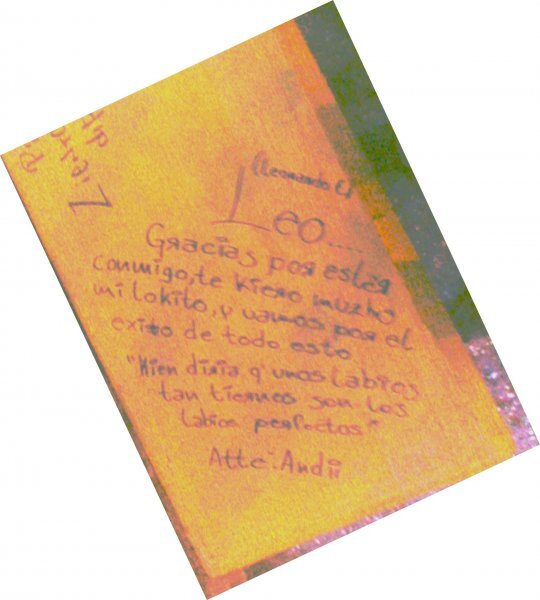 (Leonardo C)
Leo....
Gracias por estar
conmigo, te kiero muzho
mi lokito, y vamos por el
exito de todo esto
"Kien diria q' unos labios
tan tiernos son los
labios perfectos"
Atte: Andii